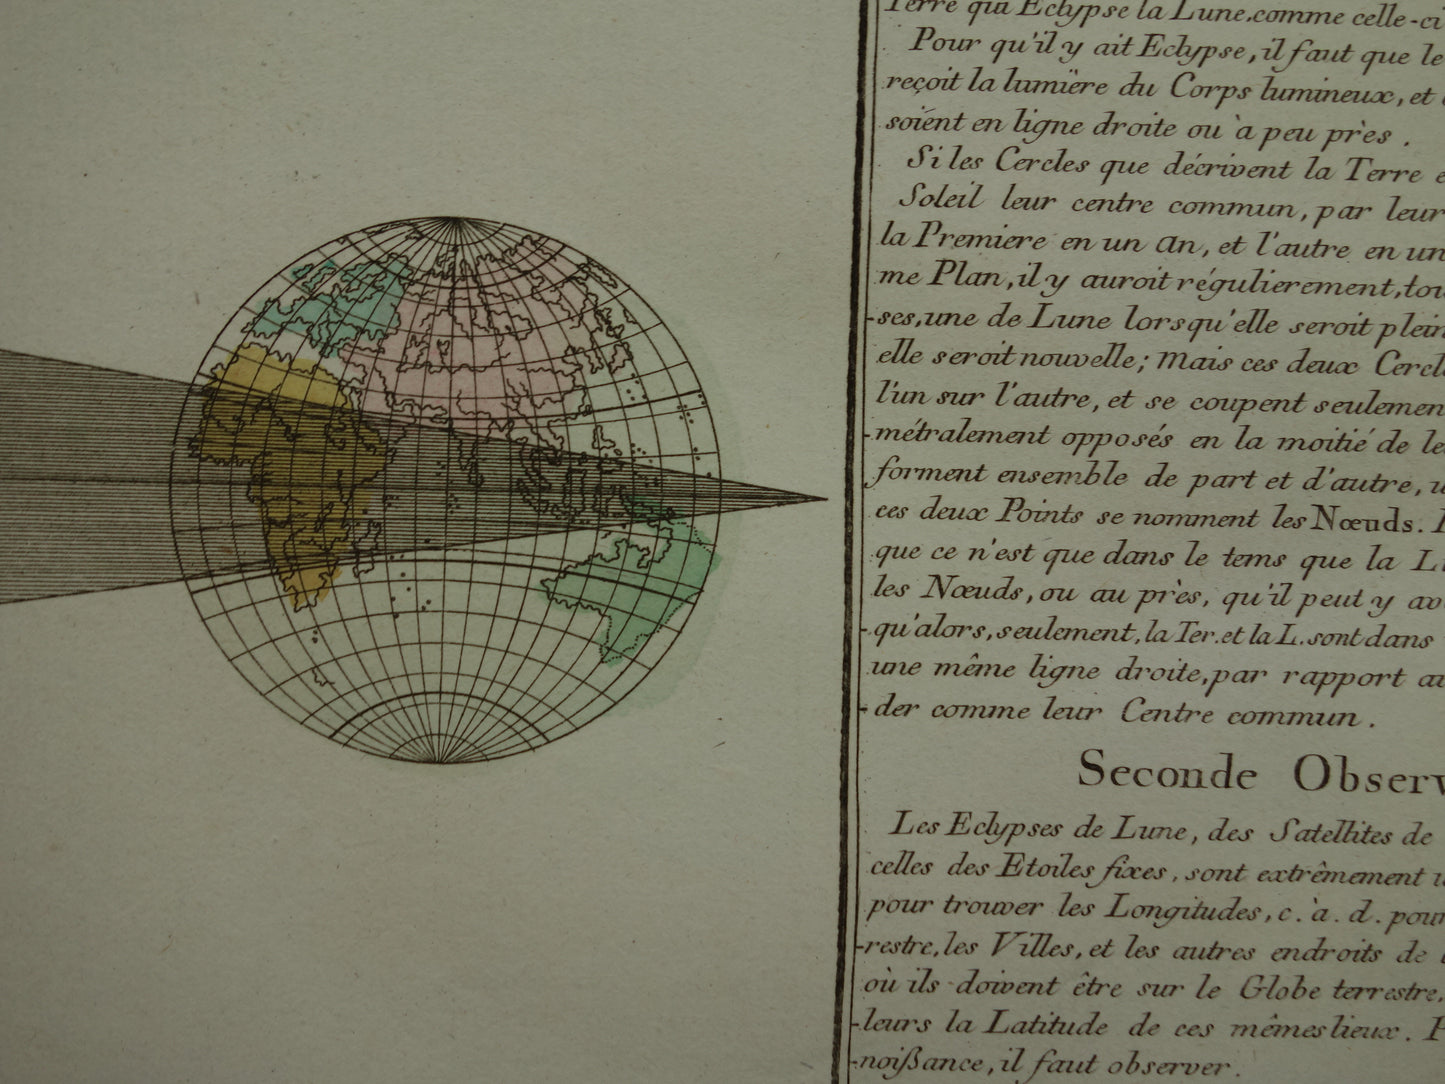 Terre qui Eclypse la Lune.comme celle-ci
Pour qu'il y ait Eclypse, il faut que le
reçoit la lumïere du Corps lumineux, et
soiént en ligne droite ou à peu près .
Si les Cercles que décrivent la Terre e
Soleil leur centre commun, par leur
la Premiere en un An, et l'autre en un
me Plan, il y auroit régulierement, tou
ses, une de Lune lorsqu'elle seroit plein
elle seroit nouvelle; Mais ces deux Cercle
l'un sur l'autre, et se coupent seulemen
métralement opposés en la moitié de le
forment ensemble de part et d'autre, u
ces deux Points se nomment les Nœuds.
que ce n'est que dans le tems que la L
les Nœuds, ou au près, qu'il peut y av
qu'alors, seulement, la Ter. et la L. sont dans
une même ligne droite, par rapport au
der comme leur Centre commun .
Seconde Observ
Les Eclypses de Lune, des Satellites de
celles des Etoiles fixes, sont extrêmement u
pour trouver les Longitudes, c. à. d. pour
restre, les Villes, et les autres endroits de
où ils doivent être sur le Globe terrestre,
leurs la Latitude de ces mêmes lieux .
noißance, il faut observer.